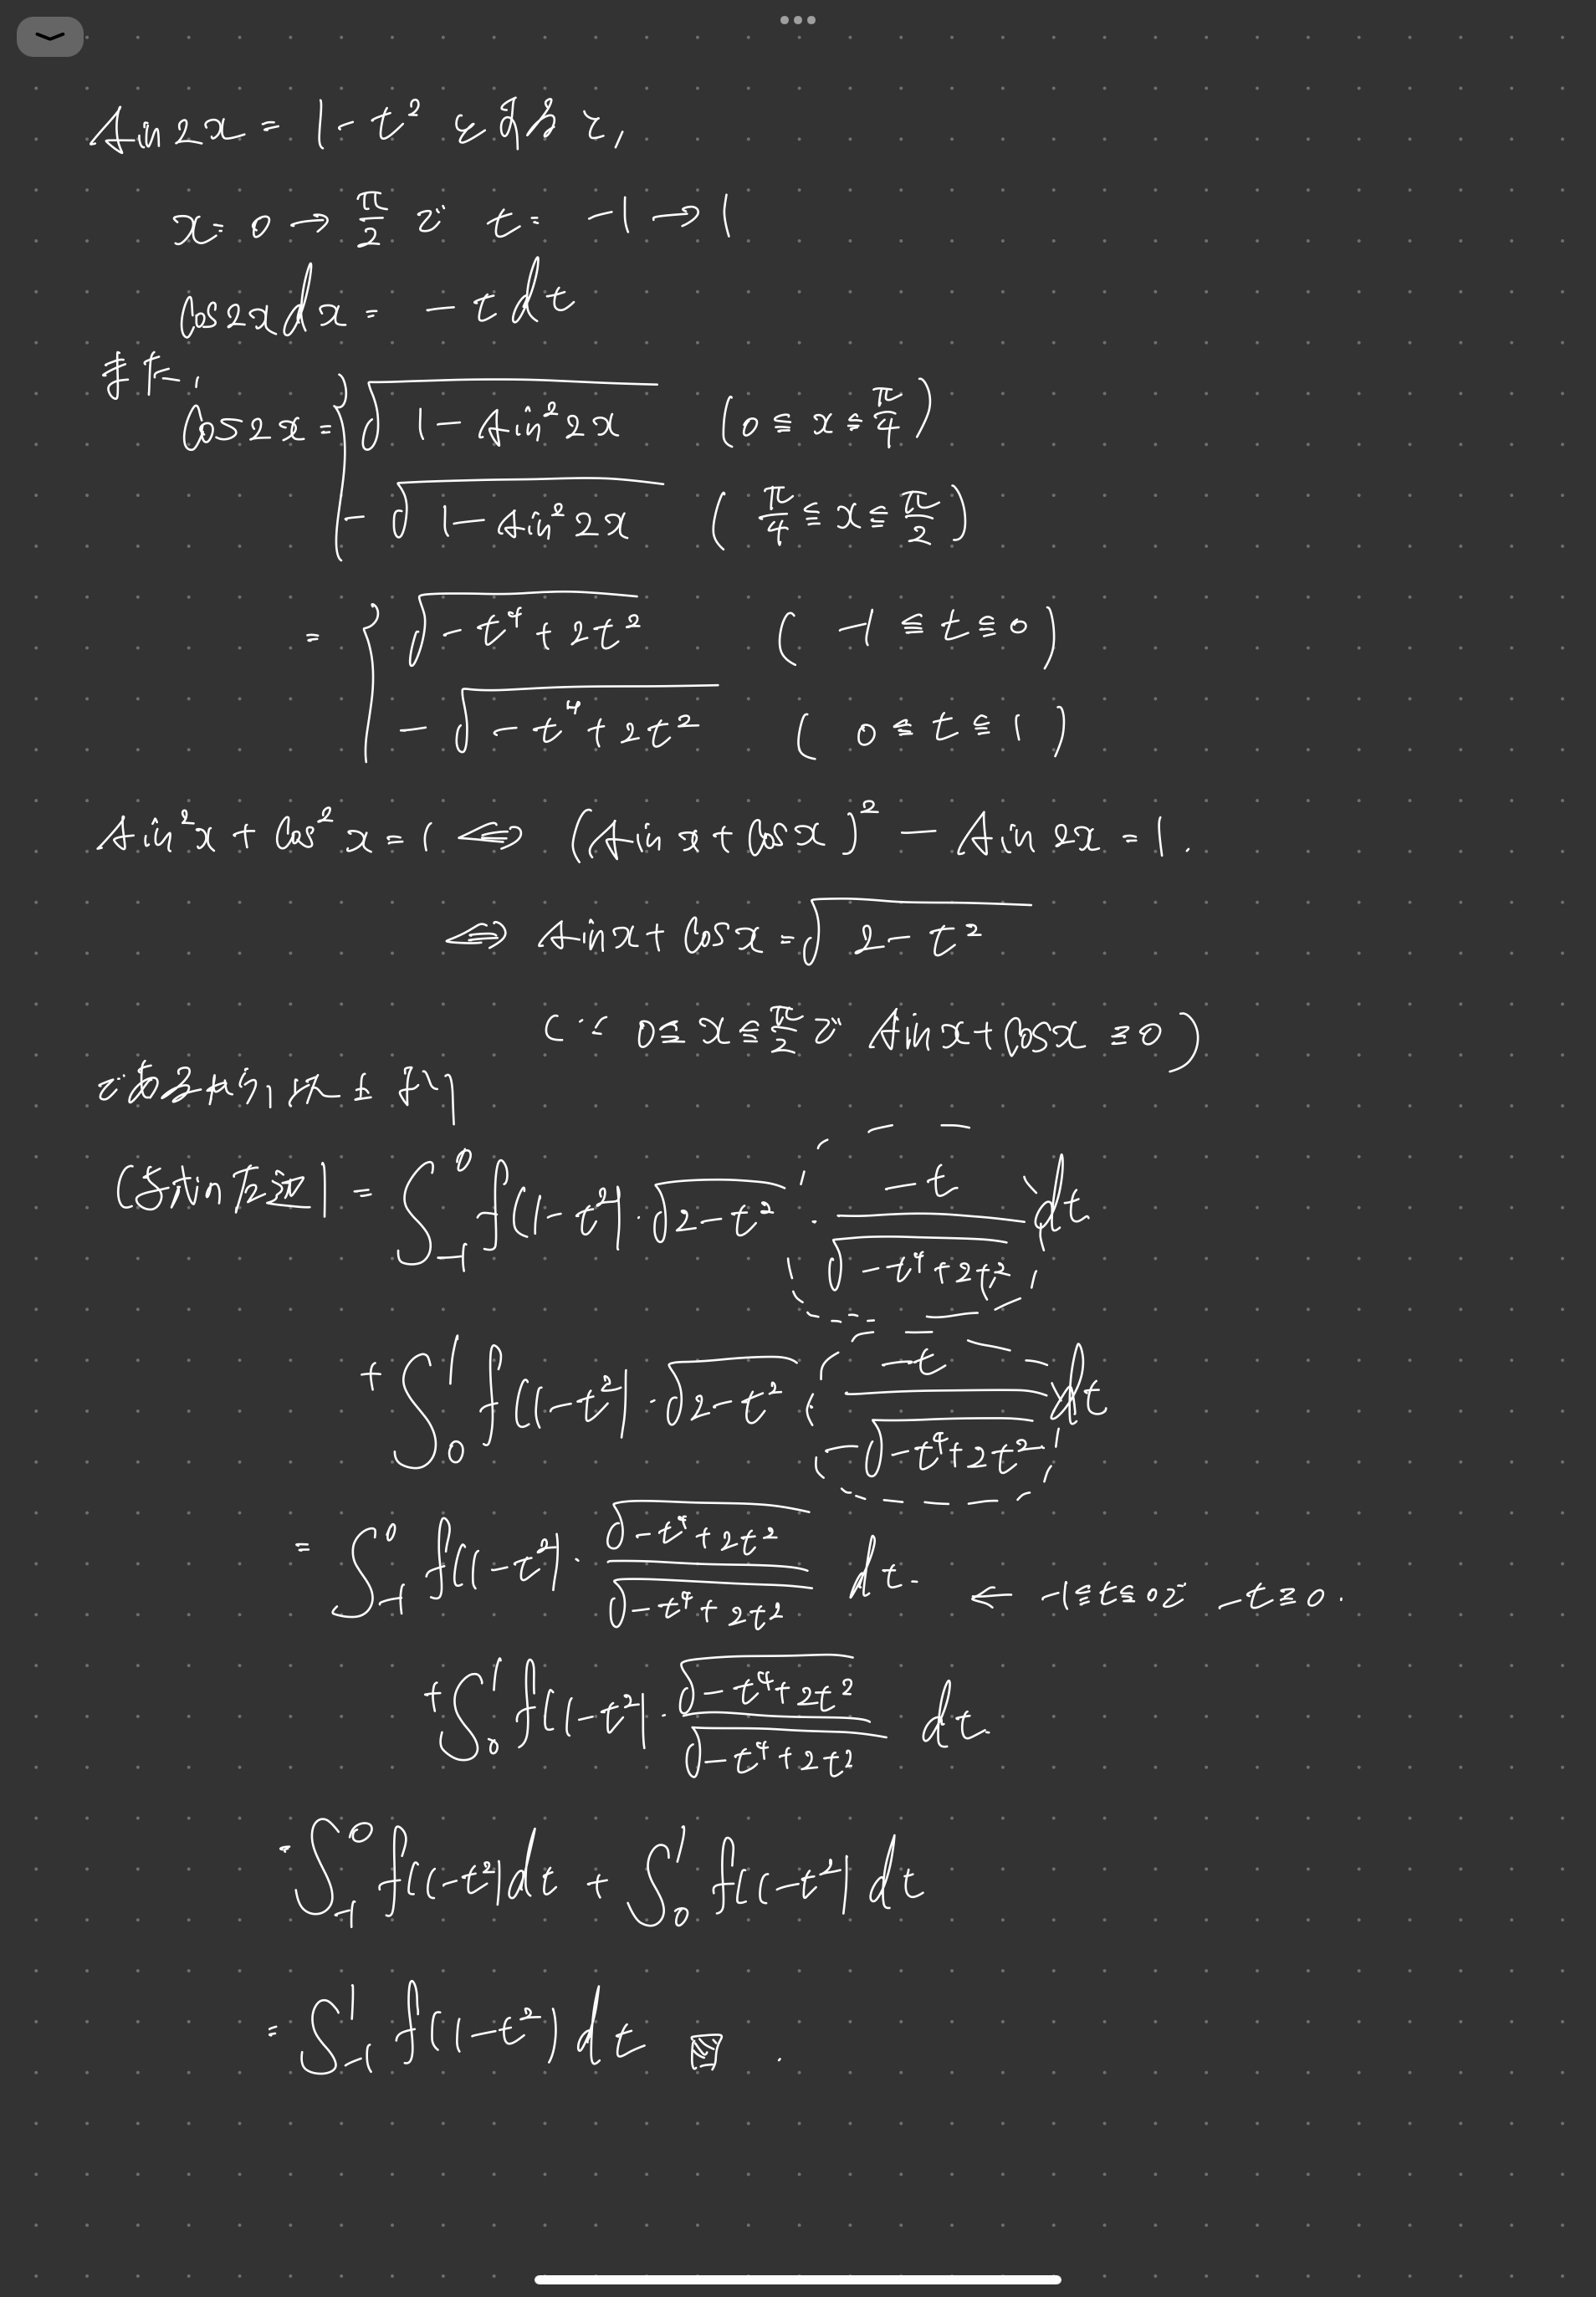 sin2x = 1 - t² とおくと,
x: 0 → π/2 で t: -1 → 1
cos2x dx = -t dt
また,
cos2x = { √(1 - sin²2x) (0 ≦ x ≦ π/4)
-√(1 - sin²2x) (π/4 ≦ x ≦ π/2)
= { √(-t⁴ + 2t²) (-1 ≦ t ≦ 0)
-√(-t⁴ + 2t²) (0 ≦ t ≦ 1)
sin²x + cos²x = 1 ⇔ (sin x + cos x)² - sin 2x = 1.
⇔ sin x + cos x = √(2 - t²)
(∵ 0 ≦ x ≦ π/2 で sin x + cos x ≧ 0)
であるから, 以上より
(与えられた) = ∫₋₁⁰ f(1 - t²)・√(2 - t²)・(-t)/√(-t⁴ + 2t²) dt
+ ∫₀¹ f(1 - t²)・√(2 - t²)・(-t)/(-√(-t⁴ + 2t²)) dt
= ∫₋₁⁰ f(1 - t²)・√(-t⁴ + 2t²)/√(-t⁴ + 2t²) dt. ← -1 ≦ t ≦ 0で -t ≧ 0.
+ ∫₀¹ f(1 - t²)・√(-t⁴ + 2t²)/√(-t⁴ + 2t²) dt.
= ∫₋₁⁰ f(1 - t²) dt + ∫₀¹ f(1 - t²) dt
= ∫₋₁¹ f(1 - t²) dt.